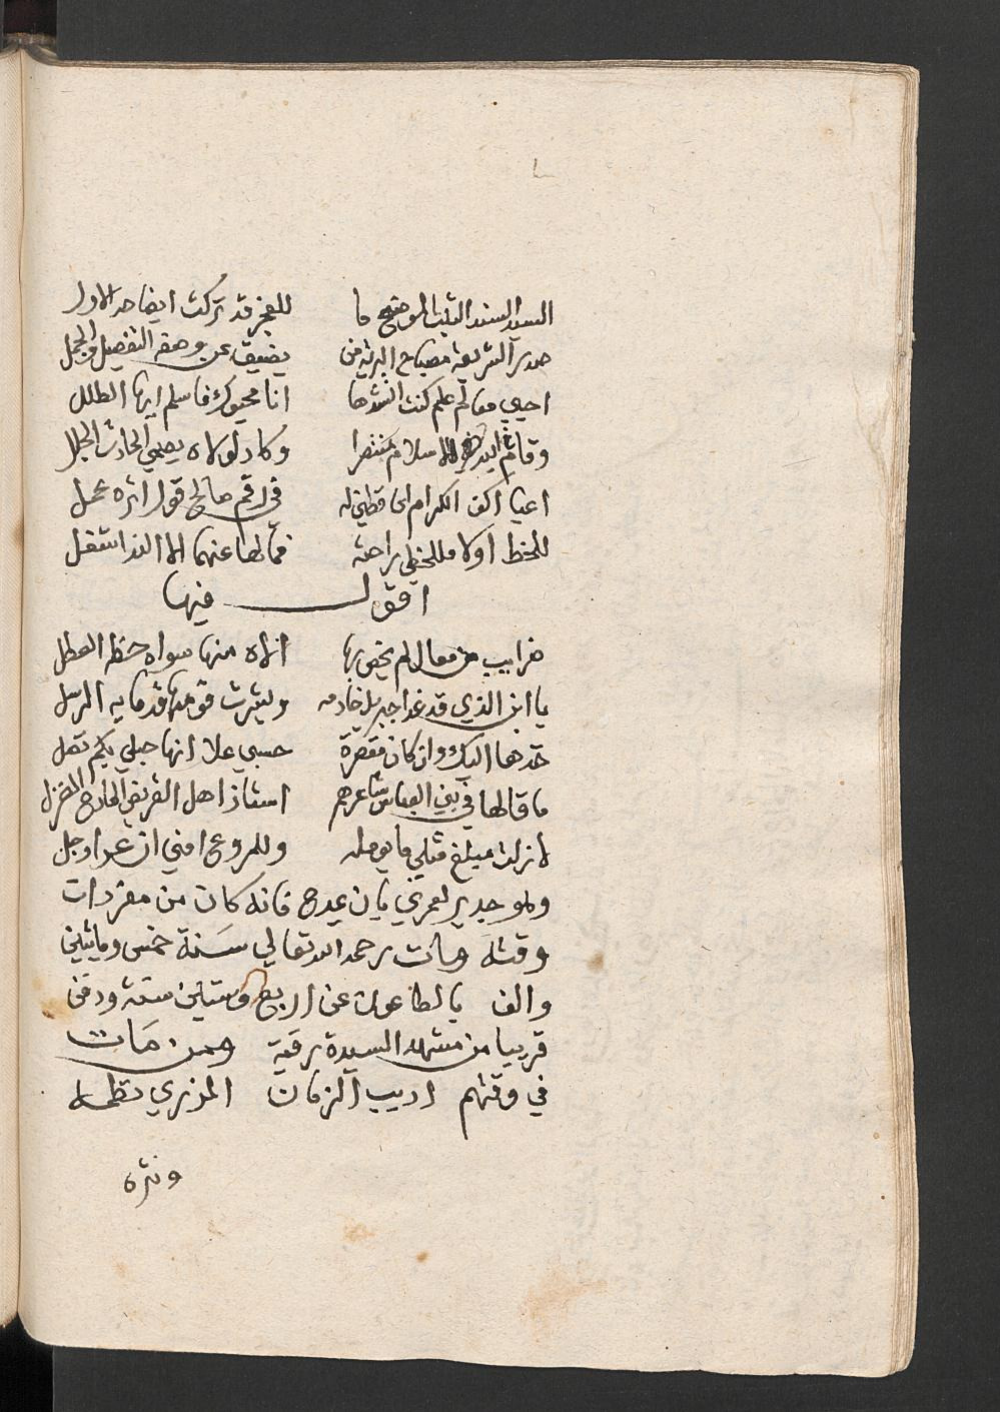 السيد السند الثبت الموضح ما للعجز قد تركت ايضاحه الاول
صدر الشريعة مصباح البرية من يضيق عن وصفه التفصيل والجمل
احيي معالم علم كنت انشدها انا محيوك فاسلم ايها الطلل
وقام لله للاسلام منتصرا وكاد لولاه يصمي الحادث الجلل
اعيا اكف الكرام قطني له في رقم صالح قول اثره عمل
للخط اولا مللخطي براحته فما لها عنهما الا الندا شغل
اقول فيها
غرايب من معال لم يخص بها اناه منها سواه حظه العطل
يا ابن الذي قد غدا جبريل خادمه وبشرت قومها قدما به الرسل
خذها اليك وان كان مقصرة حسبي علا انها حبلي بكم تصل
ما قالها في بني العباس شاعرهم استاذ اهل القريض
لا زلت مبلغ مثلي ما يومله وللمروع امني ان عرا وجل
ولهو جدير لعمري بان يمدح فانه كان من مفردات
وقته ومات رحمه الله تعالي سنة خمس ومايتين
والف بالطاعون عن اربع وستين سنة ودفن
قريبا من مشهد السيدة رقية وممن مات
في وقتهم اديب الزمان المزري نظمه
ونثره